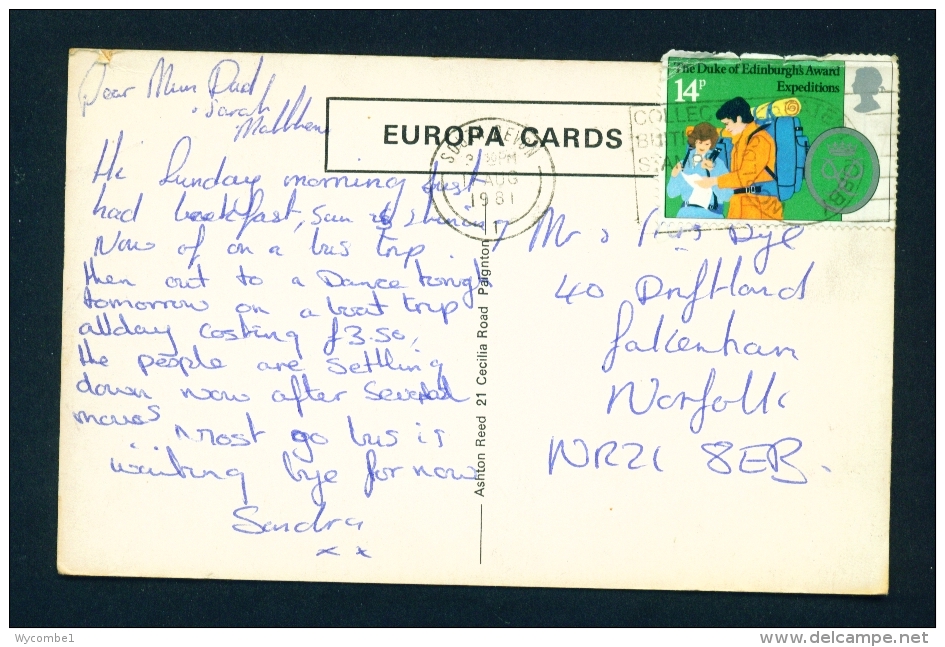 Dear Mum Dad
Sarah
Matthew
EUROPA CARDS
Hi Sunday morning just
had breakfast, Sun is shining
Now of on a bus trip
then out to a Dance tonight
tomorrow on a boat trip
allday costing £3.50,
the people are settling
down now after several
moves
Most go bus is
waiting bye for now
Sandra
x x
Ashton Reed 21 Cecilia Road Paignton
The Duke of Edinburgh's Award
Expeditions
14P
COLLECT
BRITISH
STAMPS
PM
AUG
1981
Mr & Mrs Dye
40
Fakenham
Norfolk
NR21 8EB.
Wycombe1
delcampe.net